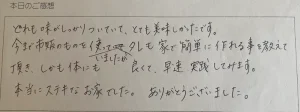 本日のご感想
どれも味がしっかりついていて、とても美味しかったです。
今まで市販のものを使っていましたが タレも 家で簡単に作れる事を教えて
頂き、しかも体にも 良くて、早速 実践してみます。
本当にステキなお家でした。 ありがとうございました。